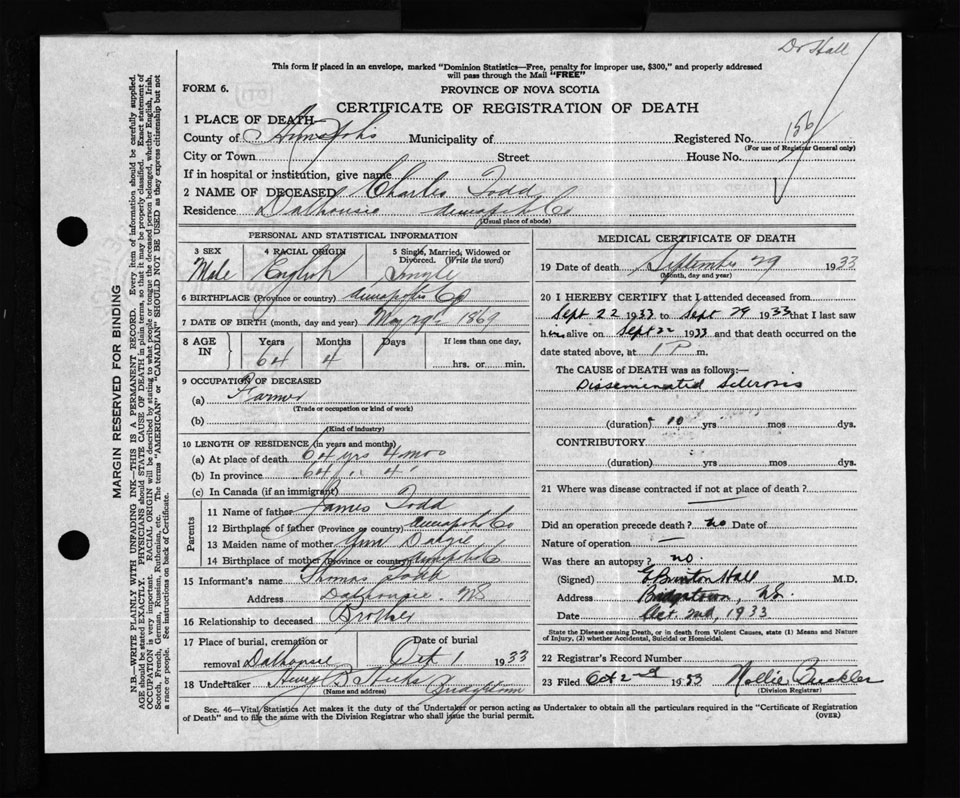 Dr Hall
This form if placed in an envelope, marked "Dominion Statistics—Free, penalty for improper use, $300," and properly addressed
will pass through the Mail "FREE"
FORM 6.
PROVINCE OF NOVA SCOTIA
CERTIFICATE OF REGISTRATION OF DEATH
1 PLACE OF DEATH
County of Annapolis Municipality of Registered No. 156
(For use of Registrar General only)
City or Town Street House No.
If in hospital or institution, give name
2 NAME OF DECEASED Charles Todd
Residence Dalhousie Annapolis Co
(Usual place of abode)
PERSONAL AND STATISTICAL INFORMATION
3 SEX 4 RACIAL ORIGIN 5 Single, Married, Widowed or
Divorced. (Write the word)
Male English Single
6 BIRTHPLACE (Province or country) Annapolis Co
7 DATE OF BIRTH (month, day and year) May 29 1869
8 AGE IN Years Months Days If less than one day,
64 4 hrs. or min.
9 OCCUPATION OF DECEASED
(a) Farmer
(Trade or occupation or kind of work)
(b)
(Kind of industry)
10 LENGTH OF RESIDENCE (in years and months)
(a) At place of death 64 yrs 4 mos
(b) In province 64 " 4 "
(c) In Canada (if an immigrant)
Parents
11 Name of father James Todd
12 Birthplace of father (Province or country) Annapolis Co
13 Maiden name of mother Ann
14 Birthplace of mother (Province or country) Annapolis Co
15 Informant's name Thomas Todd
Address Dalhousie NS
16 Relationship to deceased Brother
17 Place of burial, cremation or Date of burial
removal Dalhousie Oct 1 1933
18 Undertaker B Hicks Bridgetown
(Name and address)
MEDICAL CERTIFICATE OF DEATH
19 Date of death September 29 1933
(Month, day and year)
20 I HEREBY CERTIFY that I attended deceased from
Sept 22 1933 to Sept 29 1933 that I last saw
him alive on Sept 22 1933 and that death occurred on the
date stated above, at 1 P m.
The CAUSE of DEATH was as follows:—
Disseminated Sclerosis
(duration) 10 yrs mos dys.
CONTRIBUTORY
(duration) yrs mos dys.
21 Where was disease contracted if not at place of death?
Did an operation precede death? no Date of
Nature of operation —
Was there an autopsy? no.
(Signed) Hall M.D.
Address Bridgetown, NS.
Date Oct. 2nd, 1933
State the Disease causing Death, or in death from Violent Causes, state (1) Means and Nature
of Injury, (2) whether Accidental, Suicidal or Homicidal.
22 Registrar's Record Number
23 Filed Oct 2nd 1933 Nellie Buckler
(Division Registrar)
Sec. 46—Vital Statistics Act makes it the duty of the Undertaker or person acting as Undertaker to obtain all the particulars required in the "Certificate of Registration
of Death" and to file the same with the Division Registrar who shall issue the burial permit. (OVER)
MARGIN RESERVED FOR BINDING
N.B.—WRITE PLAINLY WITH UNFADING INK—THIS IS A PERMANENT RECORD. Every item of information should be carefully supplied.
AGE should be stated EXACTLY. PHYSICIANS should STATE CAUSE OF DEATH in plain terms, so that it may be properly classified. Exact statement of
OCCUPATION is very important. RACIAL ORIGIN will be described by stating to what people or tongue the deceased person belonged, whether English, Irish,
Scotch, French, German, Russian, Ruthenian, etc. The terms "AMERICAN" or "CANADIAN" SHOULD NOT BE USED as they express citizenship but not
a race or people. See instructions on back of Certificate.